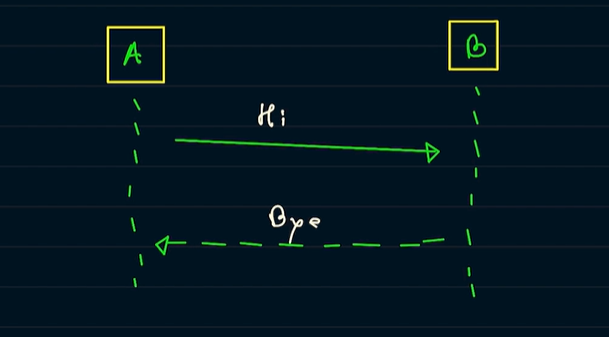 A
B
Hi
Bye